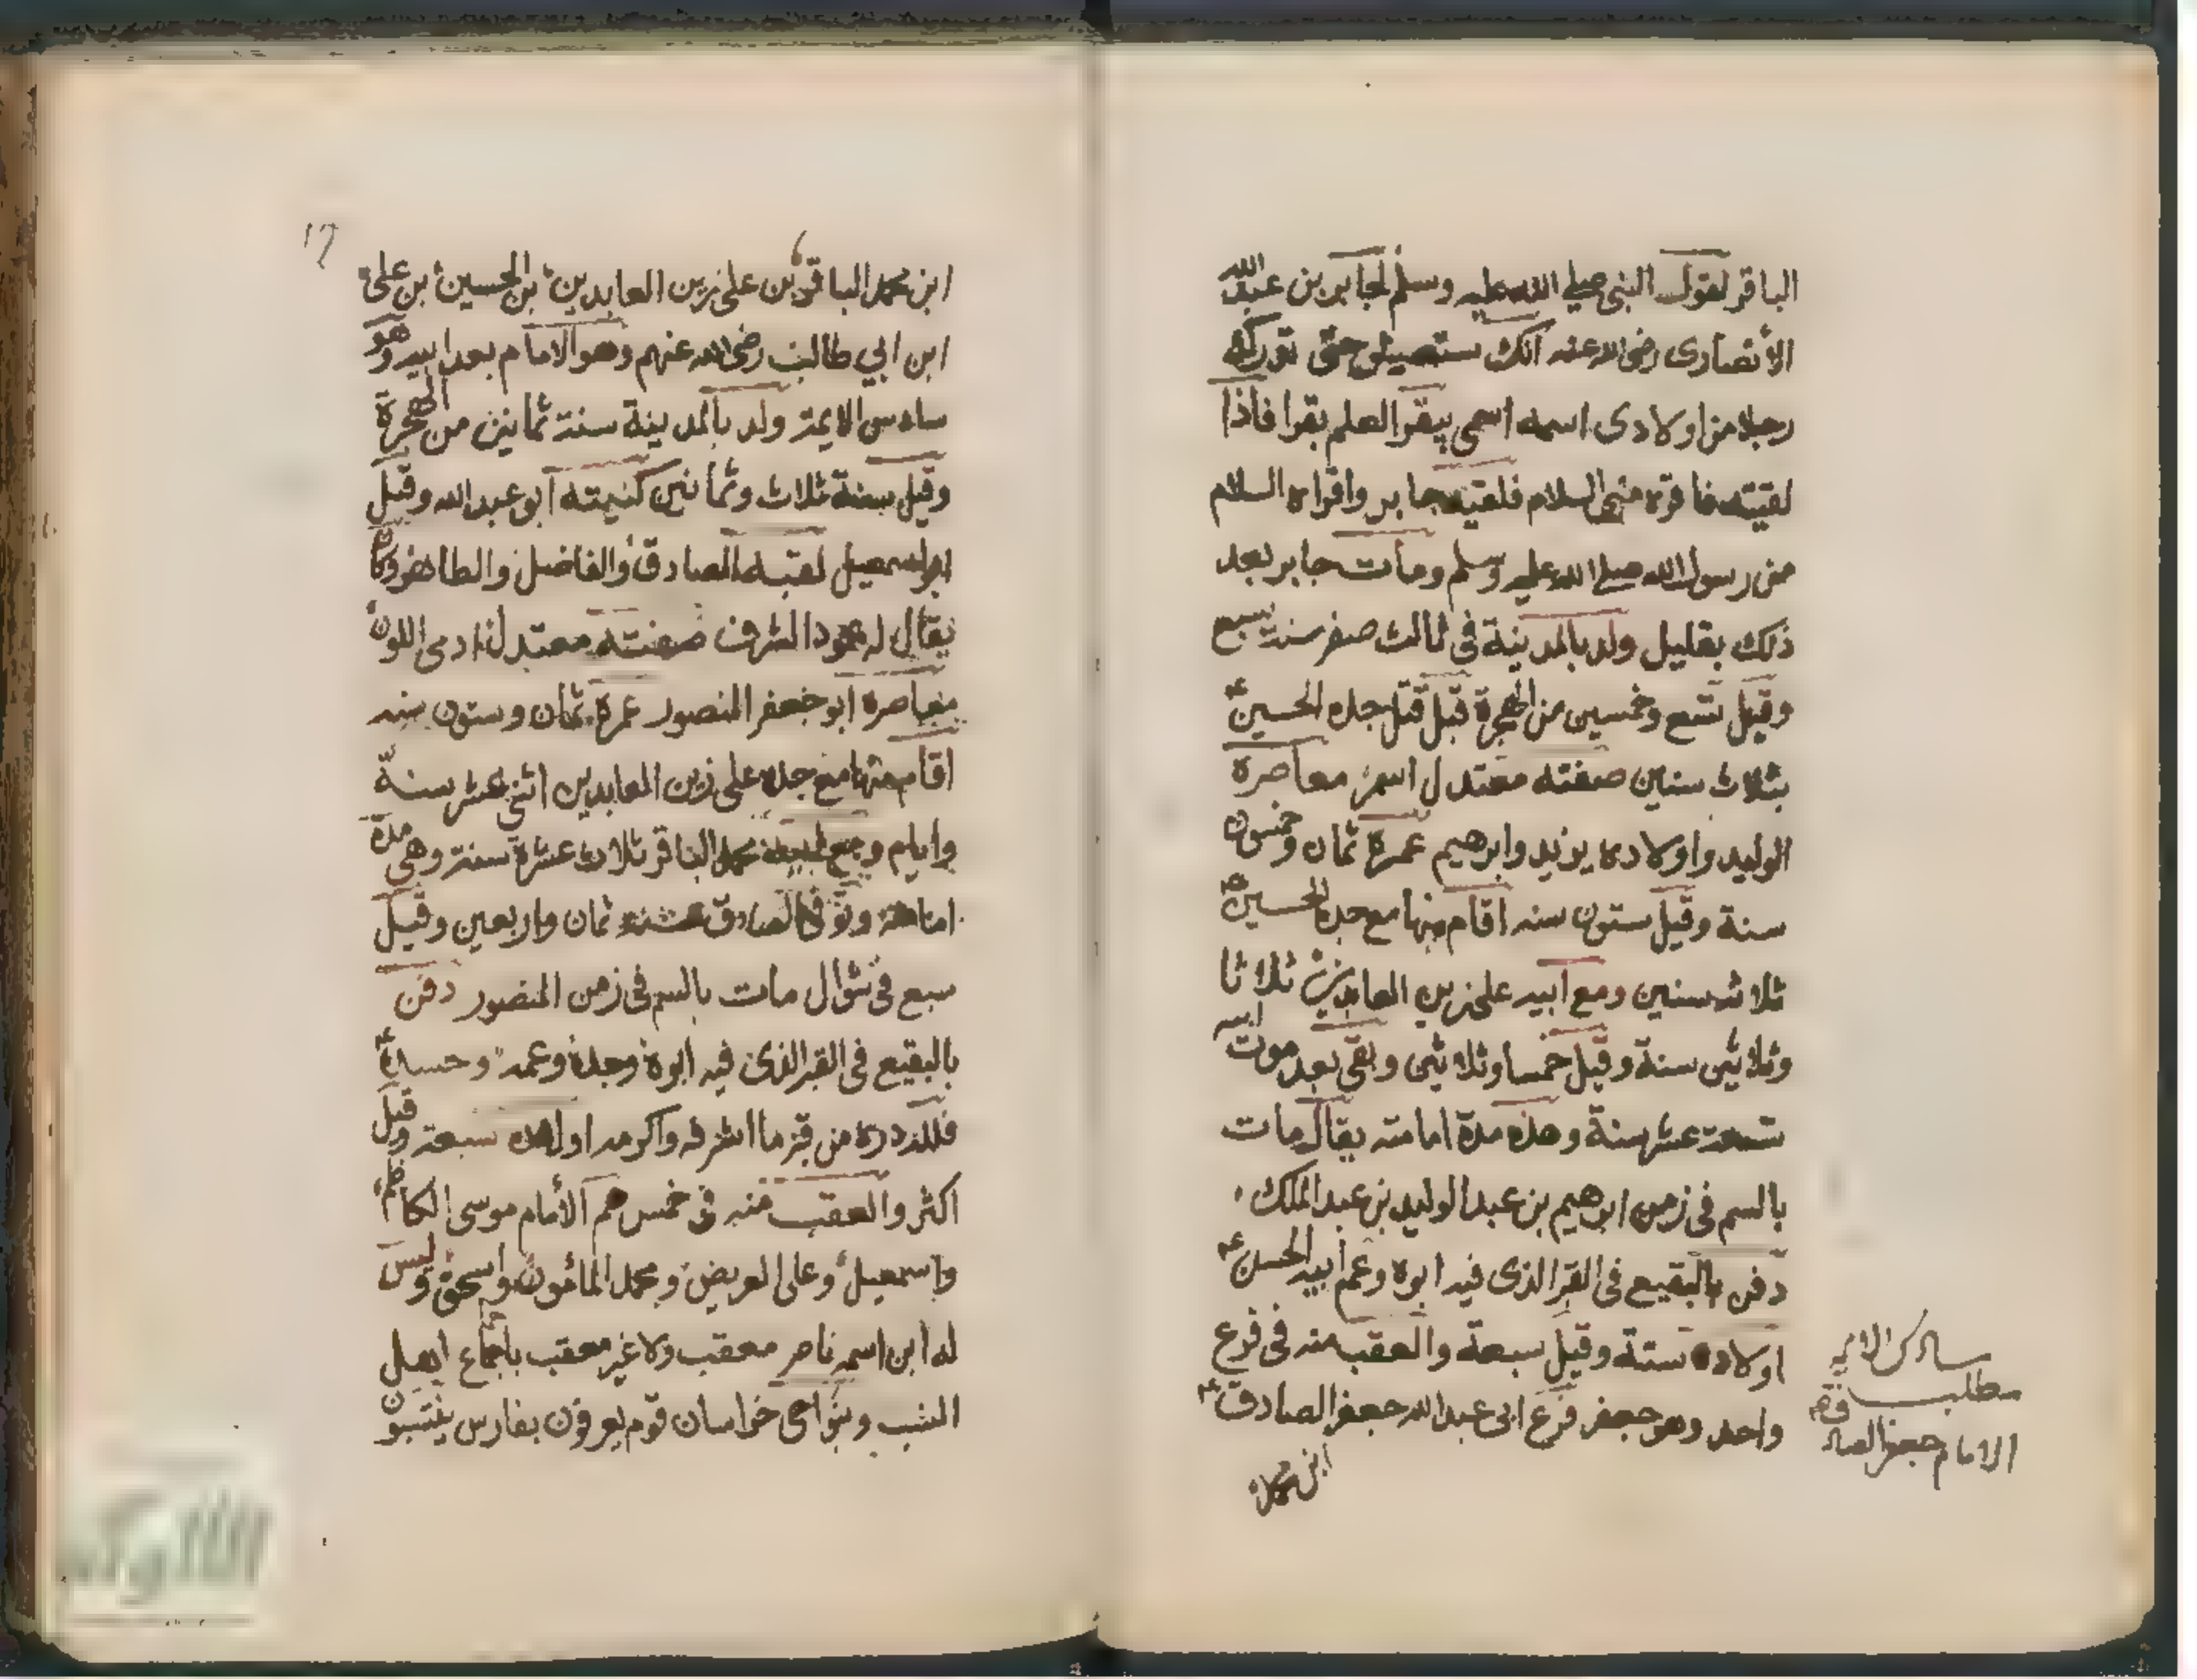 الباقر لقول النبى صلى الله عليه وسلم لجابر بن عبد الله
الأنصارى رضى الله عنه انك ستعيش حتى تدركه
رجلا من اولادى اسمه اسمى يبقر العلم بقرا فاذا
لقيته فاقره منى السلام فلقيه جابر واقراه السلام
من رسول الله صلى الله عليه وسلم ومات جابر بعد
ذلك بقليل ولد بالمدينة فى ثالث صفر سنة سبع
وقيل تسع وخمسين من الهجرة قبل قتل جده الحسين
بثلاث سنين صفته معتدل اسمر معاصره
الوليد واولاده يزيد وابرهيم عمره ثمان وخمسون
سنة وقيل ستون سنه اقام منها مع جده الحسين
ثلاث سنين ومع ابيه على زين العابدين ثلاثا
وثلاثين سنة وقيل خمسا وثلاثين وبقى بعد موت ابيه
تسعة عشر سنة وهذه مدة امامته يقال مات
بالسم فى زمن ابرهيم بن عبد الوليد بن عبد الملك
دفن بالبقيع فى القبر الذى فيه ابوه وعم ابيه الحسن
اولاده ستة وقيل سبعة والعقب منه فى فرع
واحد وهو جعفر فرع ابى عبد الله جعفر الصادق
ابن محمد
مطلب
الامام جعفر الصادق
١٢
ابن محمد الباقر بن على زين العابدين بن الحسين بن على
ابن ابي طالب رضى الله عنهم وهو الامام بعد ابيه وهو
سادس الايمة ولد بالمدينة سنة ثمانين من الهجرة
وقيل سنة ثلاث وثمانين كنيته ابو عبد الله وقيل
ابو اسمعيل لقبه الصادق والفاضل والطاهر وكان
يقال له عمود الشرف صفته معتدل ادمى اللون
معاصره ابو جعفر المنصور عمره ثمان وستون سنه
اقام منها مع جده على زين العابدين اثنى عشر سنة
وايام ومع ابيه محمد الباقر ثلاث عشرة سنة وهى مدة
امامته وتوفى الصادق سنة ثمان واربعين وقيل
سبع فى شوال مات بالسم فى زمن المنصور دفن
بالبقيع فى القبر الذى فيه ابوه وجده وعمه وحسن
فلله دره من قبر ما اشرفه واكرمه اولاده سبعة وقيل
اكثر والعقب منه فى خمس هم الأمام موسى الكاظم
واسمعيل وعلى العريض ومحمد المأمون واسحق وليس
له ابن اسمه ناصر معقب ولا غير معقب باجماع اهل
النسب وبنواحى خراسان قوم يعرفون بفارس ينتسبون